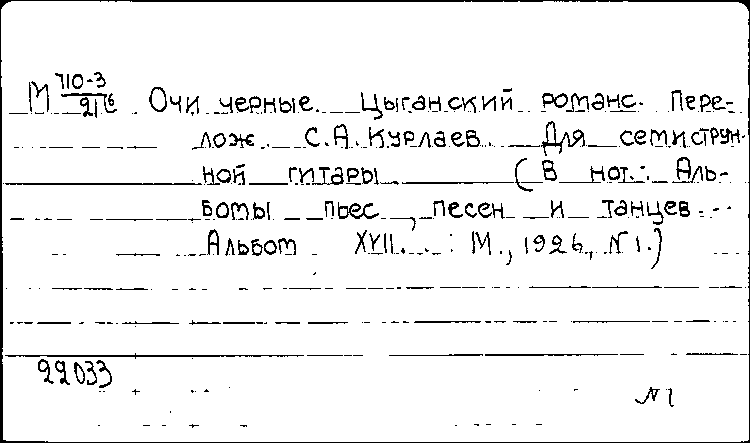 М 710-3/216 Очи черные. Цыганский романс. Пере-
лож. С.А. Курлаев. Для семиструн-
ной гитары. (В нот.: Аль-
бомы пьес, песен и танцев...
Альбом XVII... : М., 1926, N 1.)
22033
N 1